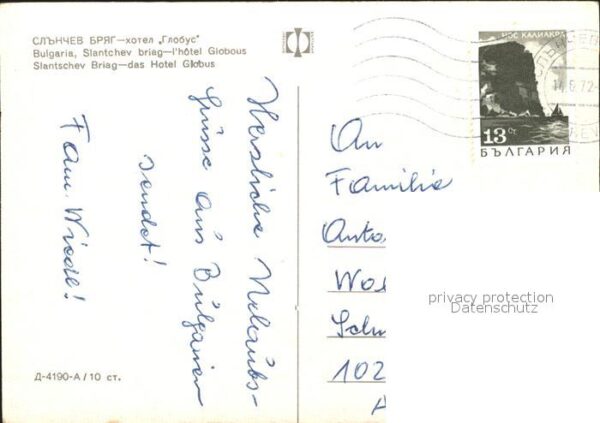 СЛЪНЧЕВ БРЯГ—хотел „Глобус"
Bulgaria, Slantchev briag—l'hôtel Globous
Slantschev Briag—das Hotel Globus
Herzliche Urlaubs-
grüsse aus Bulgarien
sendet!
Fam.
Д-4190-А/10 ст.
НОС КАЛИАКРА
13 Ст
БЪЛГАРИЯ
An
Familie
Auto
102
privacy protection
Datenschutz